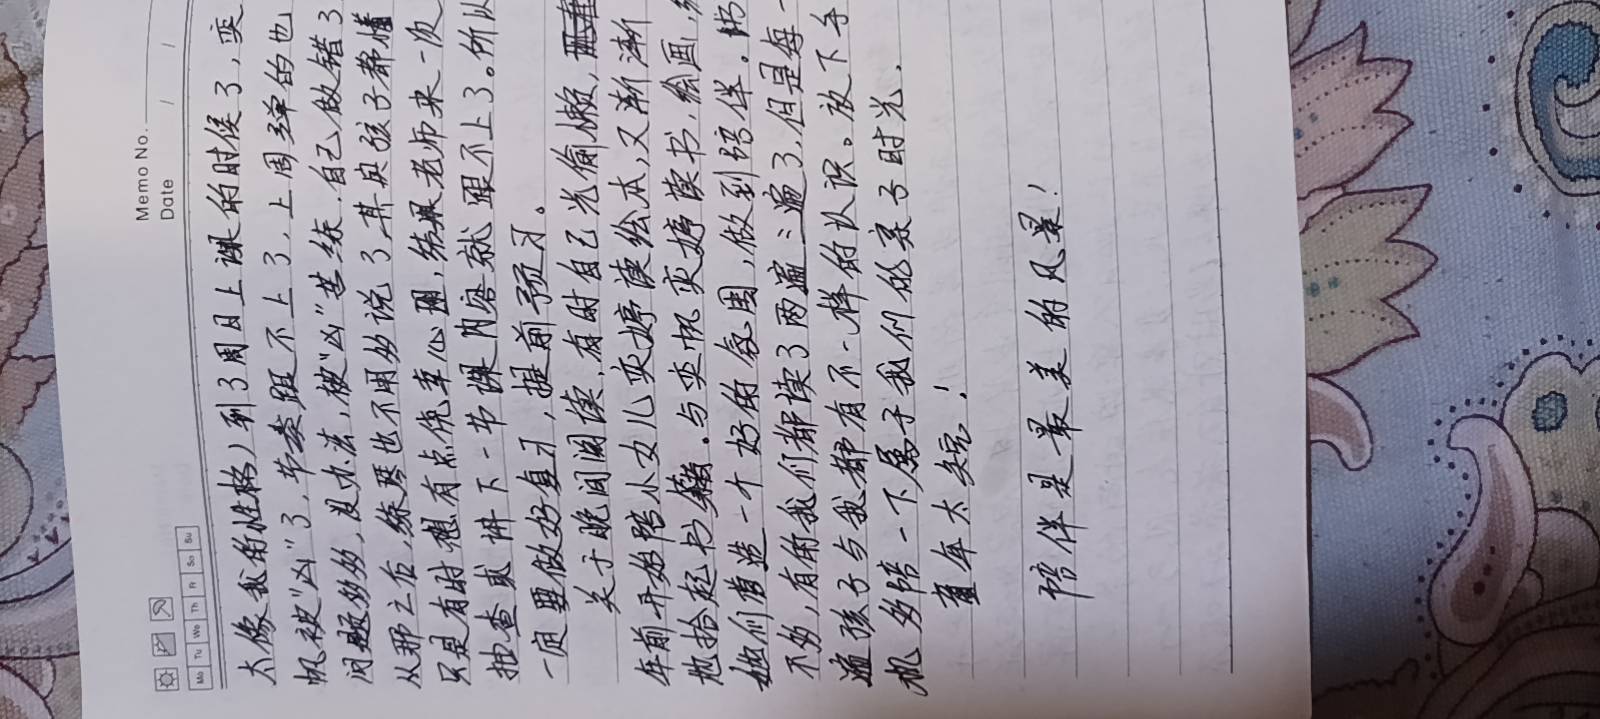 Memo No.
Date / /
Mo Tu We Th Fr Sa Su
太像我的性格)到了周日上课的时候了,奕
帆被"凶"了,节奏跟不上了,上周弹的也
问题多多,没办法,被"凶"苦练,自己做错了
从那之后,练琴也不用多说了其实孩子都懂
只是有时想有点侥幸心里,结果老师来一次
抽查或讲下一节课内容就跟不上了。所以
一定要做好复习,提前预习。
关于晚间阅读,有时自己光偷懒,
年前开始陪小女儿奕婷读绘本,又渐渐
地拾起书籍。与奕帆奕婷读书,绘画,
她们营造一个好的氛围,做到陪伴。书
不多,有的我们都读了两遍三遍了,但是每一
遍孩子与我都有不一样的认识。放下手
机多陪一下属于我们的亲子时光,
童年太短!
陪伴是最美的风景!